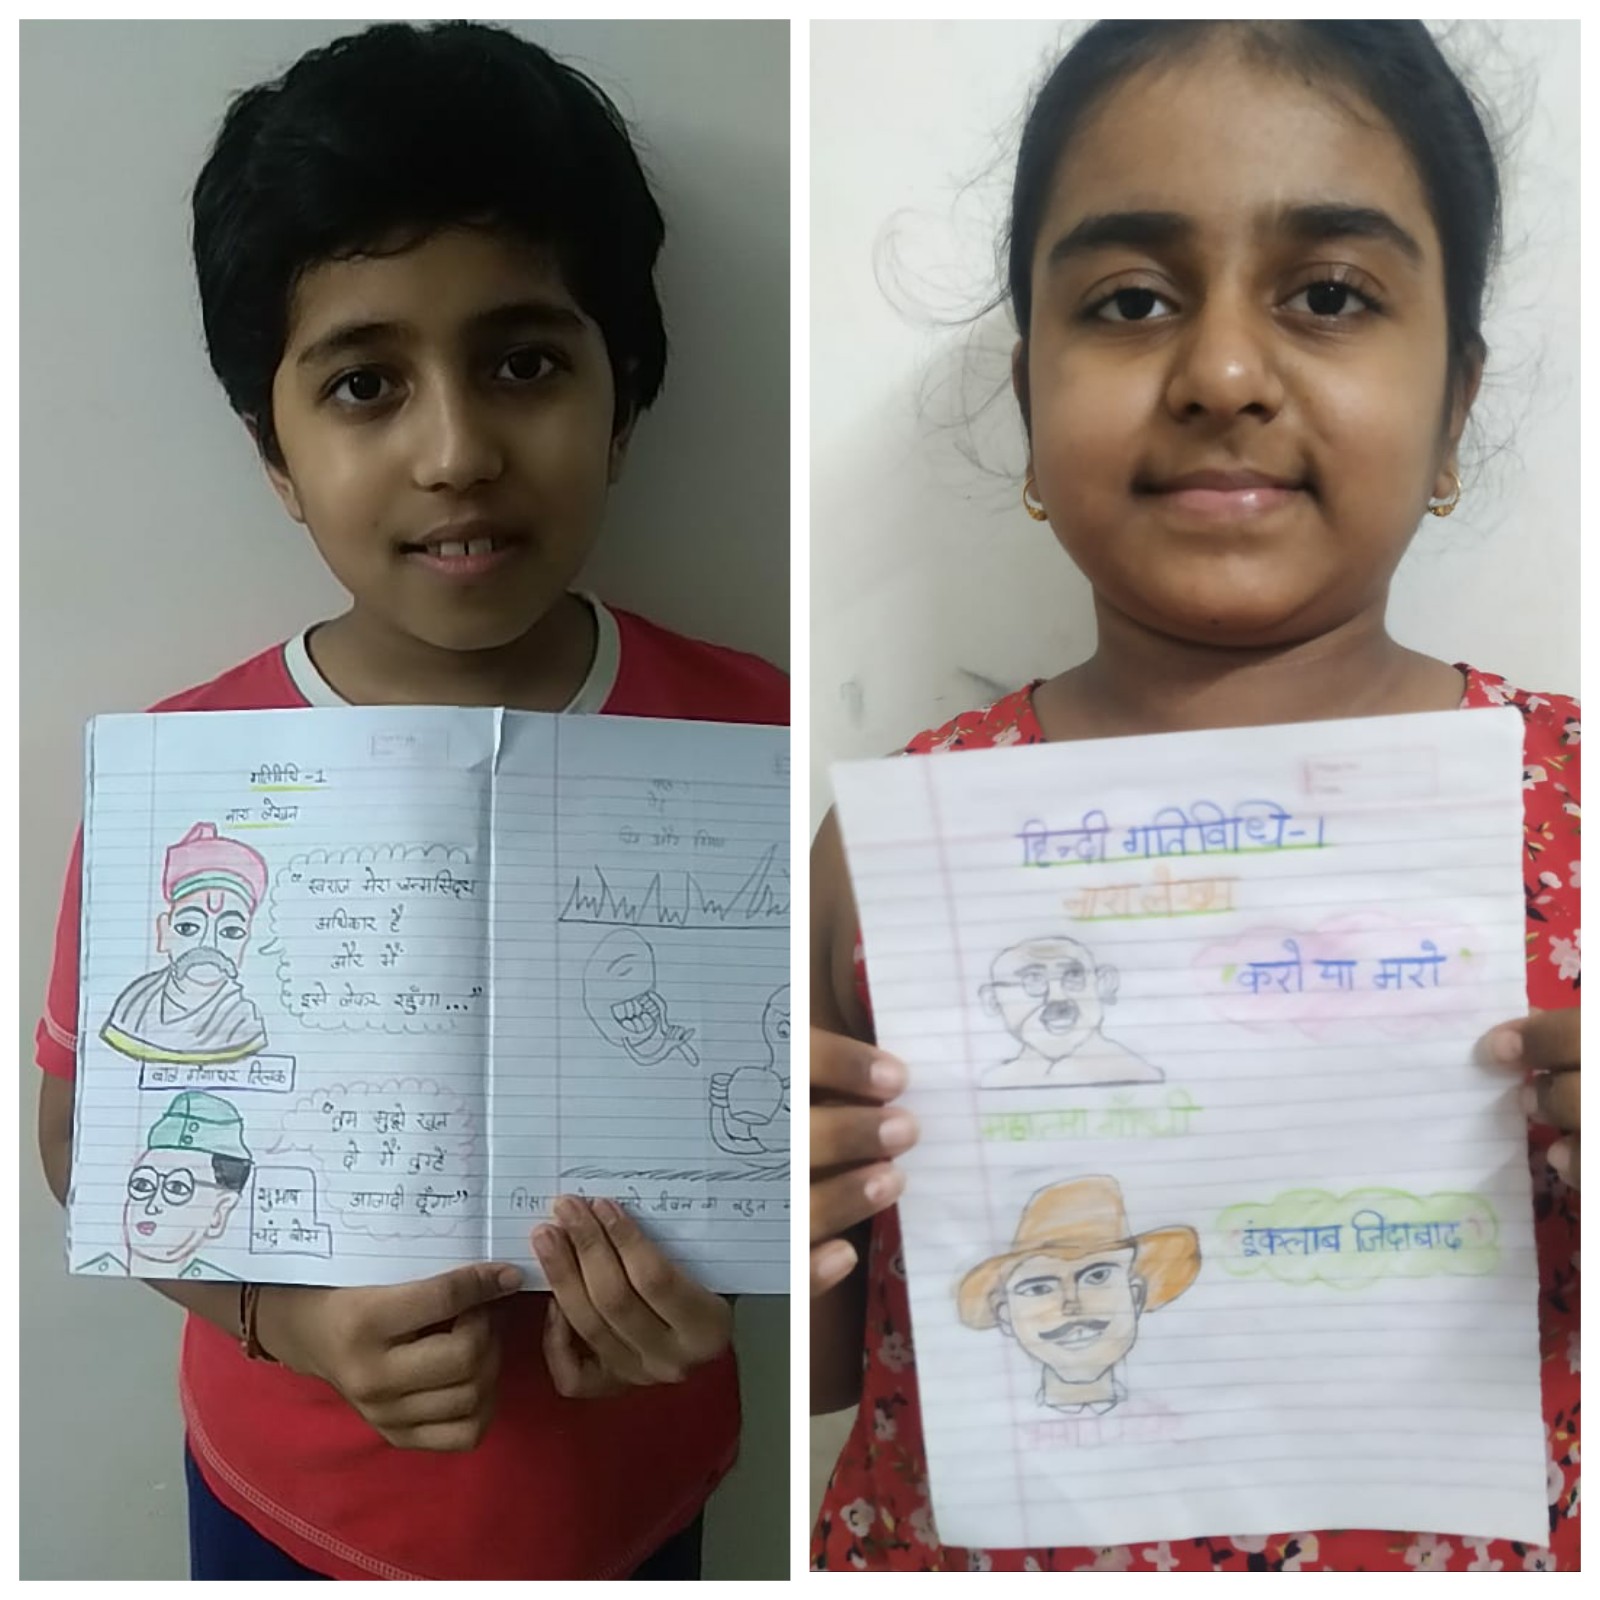 गतिविधि -1
नारा लेखन
"स्वराज मेरा जन्मसिद्ध
अधिकार है
और मैं
इसे लेकर रहूँगा..."
बाल गंगाधर तिलक
"तुम मुझे खून
दो मैं तुम्हें
आजादी दूँगा"
सुभाष
चंद्र बोस
शिक्षा
जीवन का बहुत
हिन्दी गतिविधि-1
नारा लेखन
"करो या मरो"
महात्मा गाँधी
इंकलाब जिंदाबाद